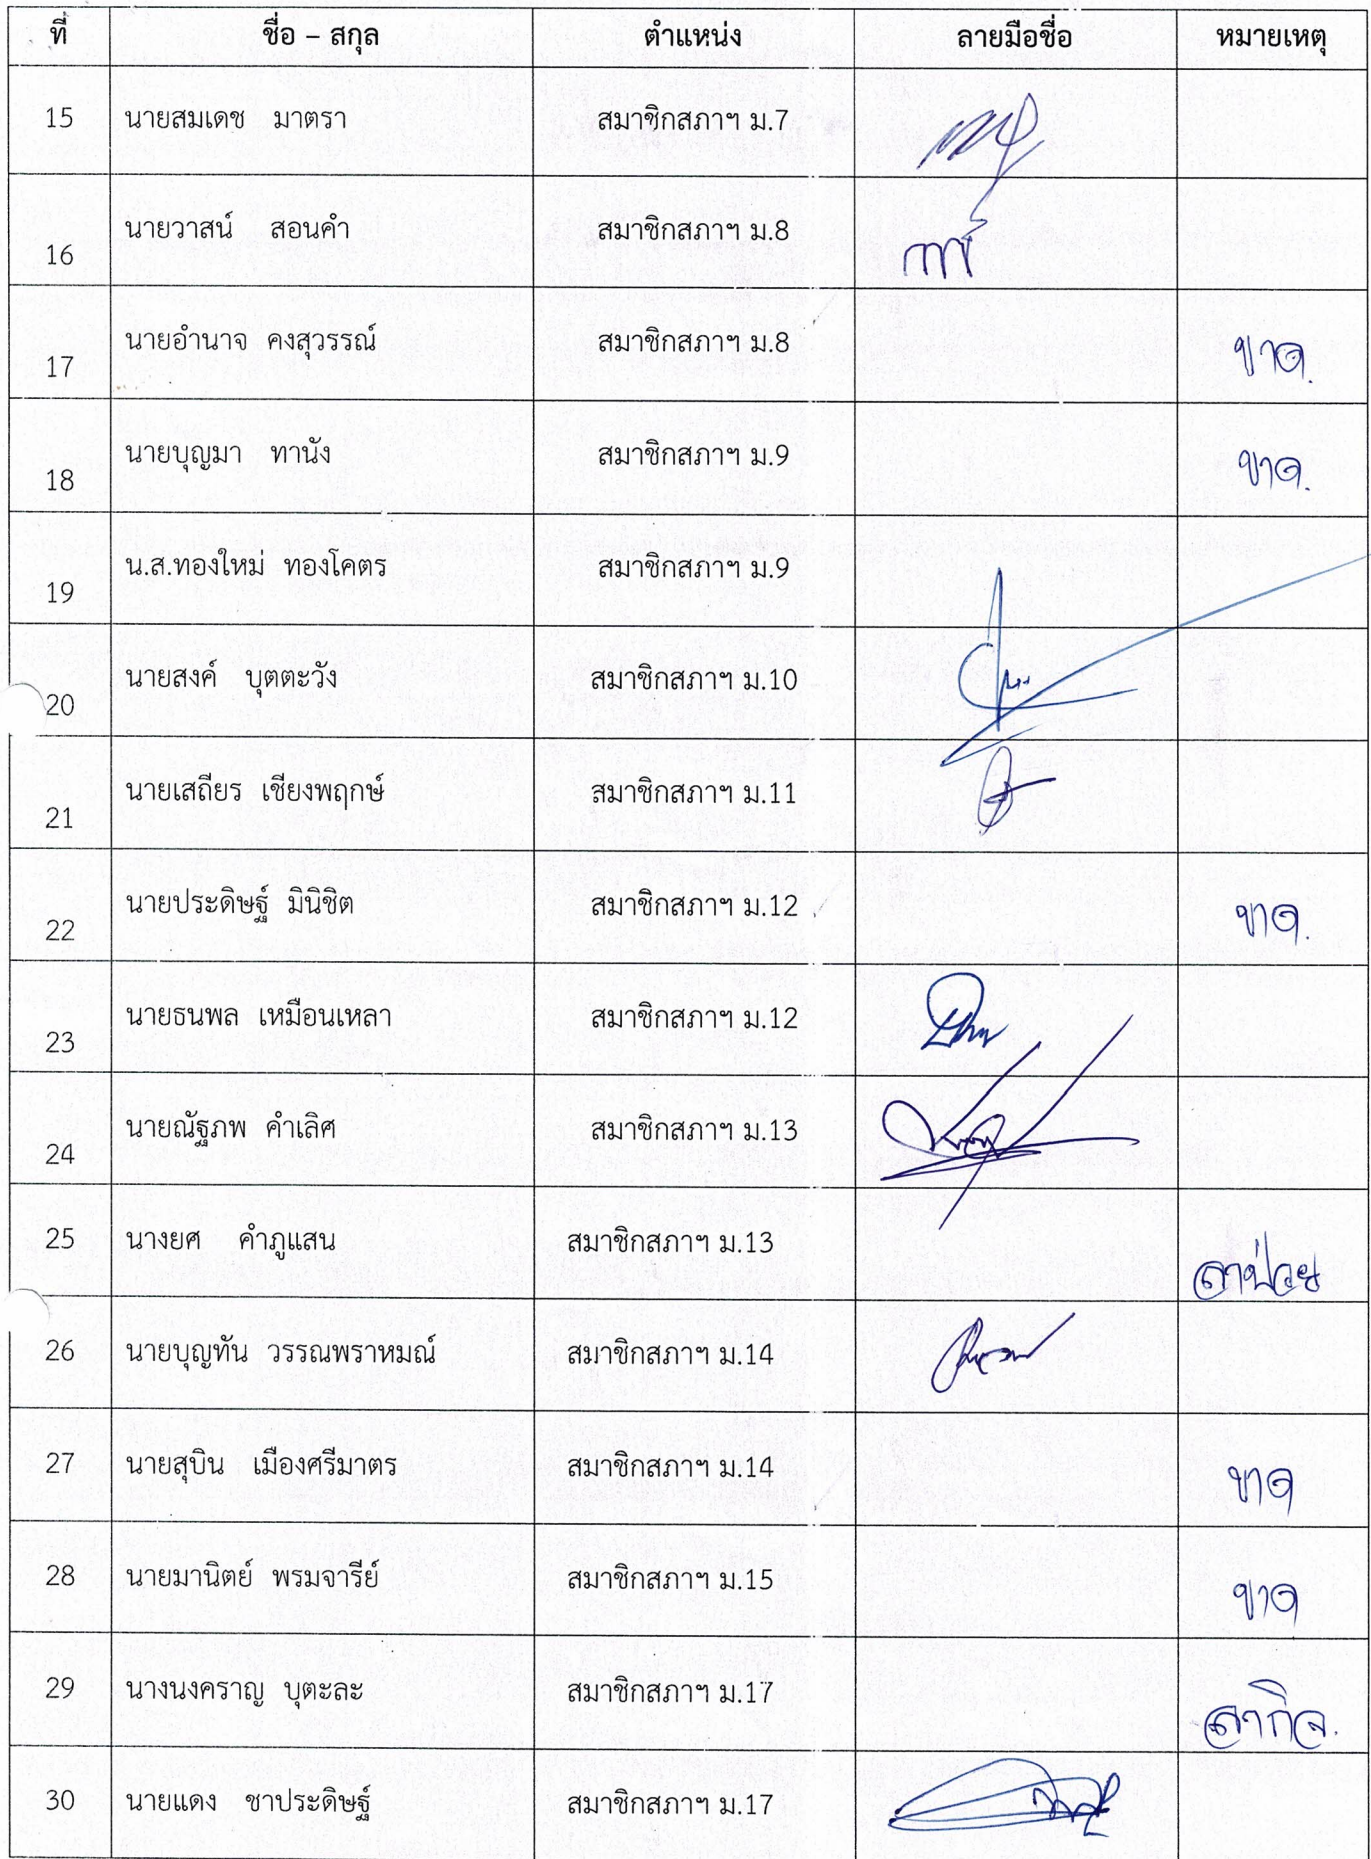 ที่ ชื่อ – สกุล ตำแหน่ง ลายมือชื่อ หมายเหตุ
15 นายสมเดช มาตรา สมาชิกสภาฯ ม.7
16 นายวาสน์ สอนคำ สมาชิกสภาฯ ม.8
17 นายอำนาจ คงสุวรรณ์ สมาชิกสภาฯ ม.8 ขาด.
18 นายบุญมา ทานัง สมาชิกสภาฯ ม.9 ขาด.
19 น.ส.ทองใหม่ ทองโคตร สมาชิกสภาฯ ม.9
20 นายสงค์ บุตตะวัง สมาชิกสภาฯ ม.10
21 นายเสถียร เชียงพฤกษ์ สมาชิกสภาฯ ม.11
22 นายประดิษฐ์ มินิชิต สมาชิกสภาฯ ม.12 ขาด.
23 นายธนพล เหมือนเหลา สมาชิกสภาฯ ม.12
24 นายณัฐภพ คำเลิศ สมาชิกสภาฯ ม.13
25 นางยศ คำภูแสน สมาชิกสภาฯ ม.13 ลาป่วย
26 นายบุญทัน วรรณพราหมณ์ สมาชิกสภาฯ ม.14
27 นายสุบิน เมืองศรีมาตร สมาชิกสภาฯ ม.14 ขาด
28 นายมานิตย์ พรมจารีย์ สมาชิกสภาฯ ม.15 ขาด
29 นางนงคราญ บุตะละ สมาชิกสภาฯ ม.17 ลากิจ.
30 นายแดง ชาประดิษฐ์ สมาชิกสภาฯ ม.17